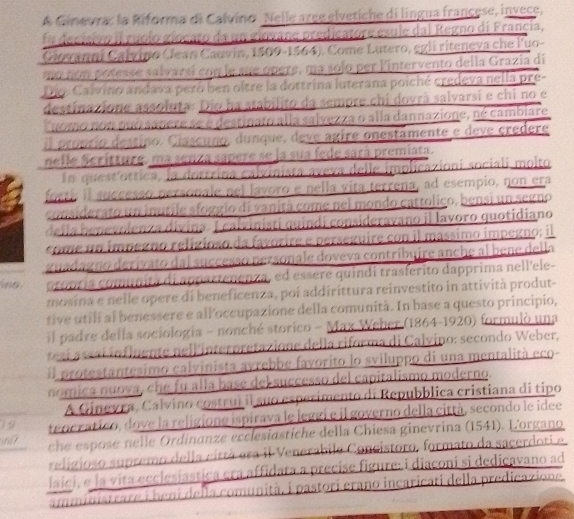 A Ginevra: la Riforma di Calvino Nelle aree elvetiche di lingua francese, invece,
fu decisivo il ruolo giocato da un giovane predicatore esule dal Regno di Francia,
Giovanni Calvino (Jean Cauvin, 1509-1564). Come Lutero, egli riteneva che l'uo-
mo non potesse salvarsi con le sue opere, ma solo per l'intervento della Grazia di
Dio. Calvino andava però ben oltre la dottrina luterana poiché credeva nella pre-
destinazione assoluta: Dio ha stabilito da sempre chi dovrà salvarsi e chi no e
l'uomo non può sapere se è destinato alla salvezza o alla dannazione, né cambiare
il proprio destino. Ciascuno, dunque, deve agire onestamente e deve credere
nelle Scritture, ma senza sapere se la sua fede sarà premiata.
In quest'ottica, la dottrina calvinista aveva delle implicazioni sociali molto
forti: il successo personale nel lavoro e nella vita terrena, ad esempio, non era
considerato un inutile sfoggio di vanità come nel mondo cattolico, bensì un segno
della benevolenza divina. I calvinisti quindi consideravano il lavoro quotidiano
come un impegno religioso da favorire e perseguire con il massimo impegno; il
guadagno derivato dal successo personale doveva contribuire anche al bene della
propria comunità di appartenenza, ed essere quindi trasferito dapprima nell'ele-
mosina e nelle opere di beneficenza, poi addirittura reinvestito in attività produt-
tive utili al benessere e all'occupazione della comunità. In base a questo principio,
il padre della sociologia – nonché storico – Max Weber (1864-1920) formulò una
tesi assai influente nell'interpretazione della riforma di Calvino: secondo Weber,
il protestantesimo calvinista avrebbe favorito lo sviluppo di una mentalità eco-
nomica nuova, che fu alla base del successo del capitalismo moderno.
A Ginevra, Calvino costruì il suo esperimento di Repubblica cristiana di tipo
teocratico, dove la religione ispirava le leggi e il governo della città, secondo le idee
che espose nelle Ordinanze ecclesiastiche della Chiesa ginevrina (1541). L'organo
religioso supremo della città era il Venerabile Concistoro, formato da sacerdoti e
laici, e la vita ecclesiastica era affidata a precise figure: i diaconi si dedicavano ad
amministrare i beni della comunità, i pastori erano incaricati della predicazione